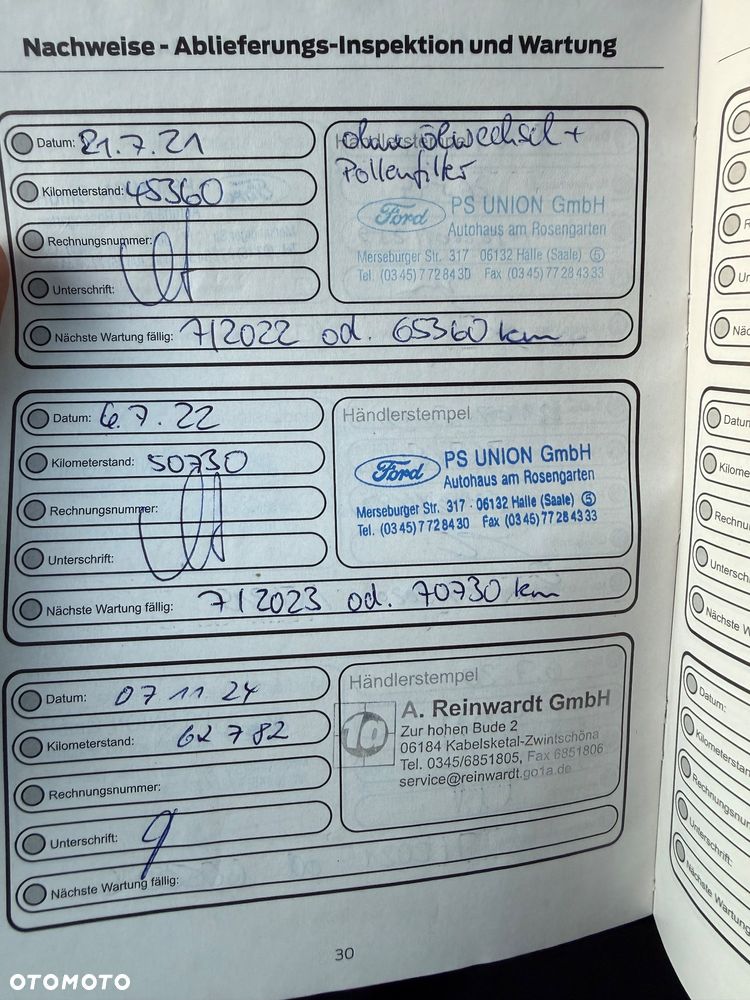 Nachweise - Ablieferungs-Inspektion und Wartung
Datum: 21.7.21
Kilometerstand: 45360
Rechnungsnummer:
Unterschrift:
Händlerstempel
ölwechsel +
Pollenfilter
Ford PS UNION GmbH
Autohaus am Rosengarten
Merseburger Str. 317 06132 Halle (Saale) 5
Tel. (03 45) 7 72 84 30 Fax (03 45) 77 28 43 33
Nächste Wartung fällig: 7/2022 od. 65360 km
Datum: 6.7.22
Kilometerstand: 50730
Rechnungsnummer:
Unterschrift:
Händlerstempel
Ford PS UNION GmbH
Autohaus am Rosengarten
Merseburger Str. 317 · 06132 Halle (Saale) 5
Tel. (03 45) 7 72 84 30 Fax (03 45) 77 28 43 33
Nächste Wartung fällig: 7/2023 od. 70730 km
Datum: 07 11 24
Kilometerstand: 62 782
Rechnungsnummer:
Unterschrift:
Händlerstempel
10 A. Reinwardt GmbH
Zur hohen Bude 2
06184 Kabelsketal-Zwintschöna
Tel. 0345/6851805, Fax 6851806
service@reinwardt.go1a.de
Nächste Wartung fällig:
30
Datum:
Kilome
Rechnu
Untersch
Nächste W
Datum:
Kilometerstand
Rechnungsnu
Unterschrift:
Nächste Wartung
OTOMOTO